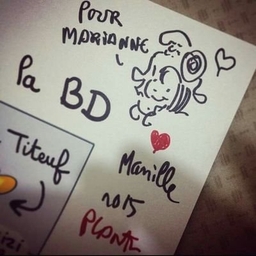 POUR
MARIANNE
la BD
Titeuf
Manille
2015
PLANTE
izi